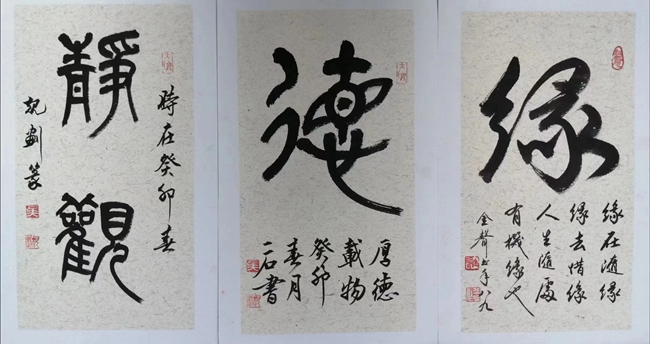 靜觀
時在癸卯春
德
厚德
載物
癸卯
春月
石書
緣
緣在隨緣
緣去惜緣
人生隨處
有機緣也
金聲书年八九